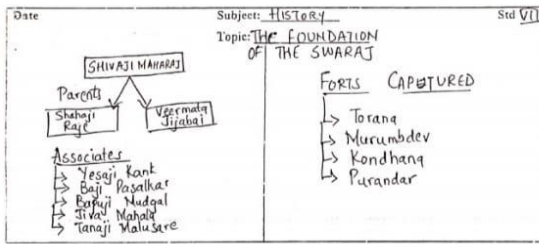 Date
Subject: HISTORY
Std VII
Topic: THE FOUNDATION
OF THE SWARAJ
SHIVAJI MAHARAJ
Parents
Shahaji
Raje
Veermata
Jijabai
Associates
Yesaji Kank
Baji Pasalkar
Bapuji Mudgal
Jiva Mahala
Tanaji Malusare
FORTS CAPTURED
Torana
Murumbdev
Kondhana
Purandar